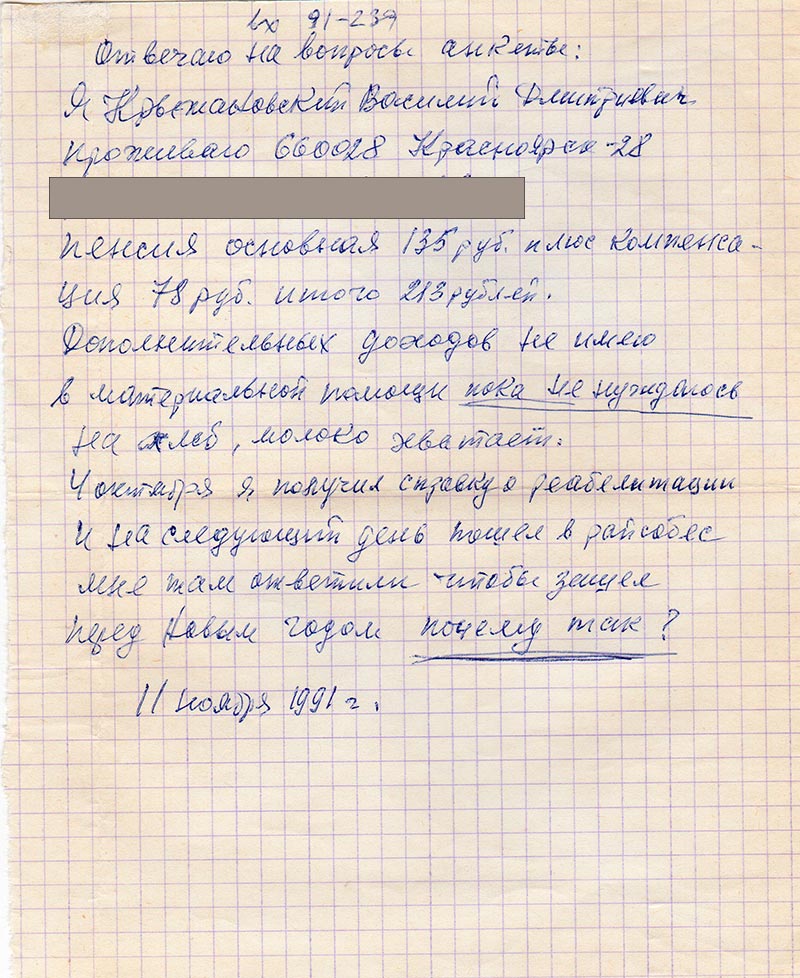 вх 91-239
Отвечаю на вопросы анкеты:
Я Кржижановский Василий Дмитриевич
проживаю 660028 Красноярск-28
пенсия основная 135 руб. плюс компенса-
ция 78 руб. итого 213 рублей.
Дополнительных доходов не имею
в материальной помощи пока не нуждаюсь
на хлеб, молоко хватает.
4 октября я получил справку о реабелитации
и на следующий день пошел в райсобес
мне там ответили чтобы зашел
перед Новым годом почему так?
11 ноября 1991 г.